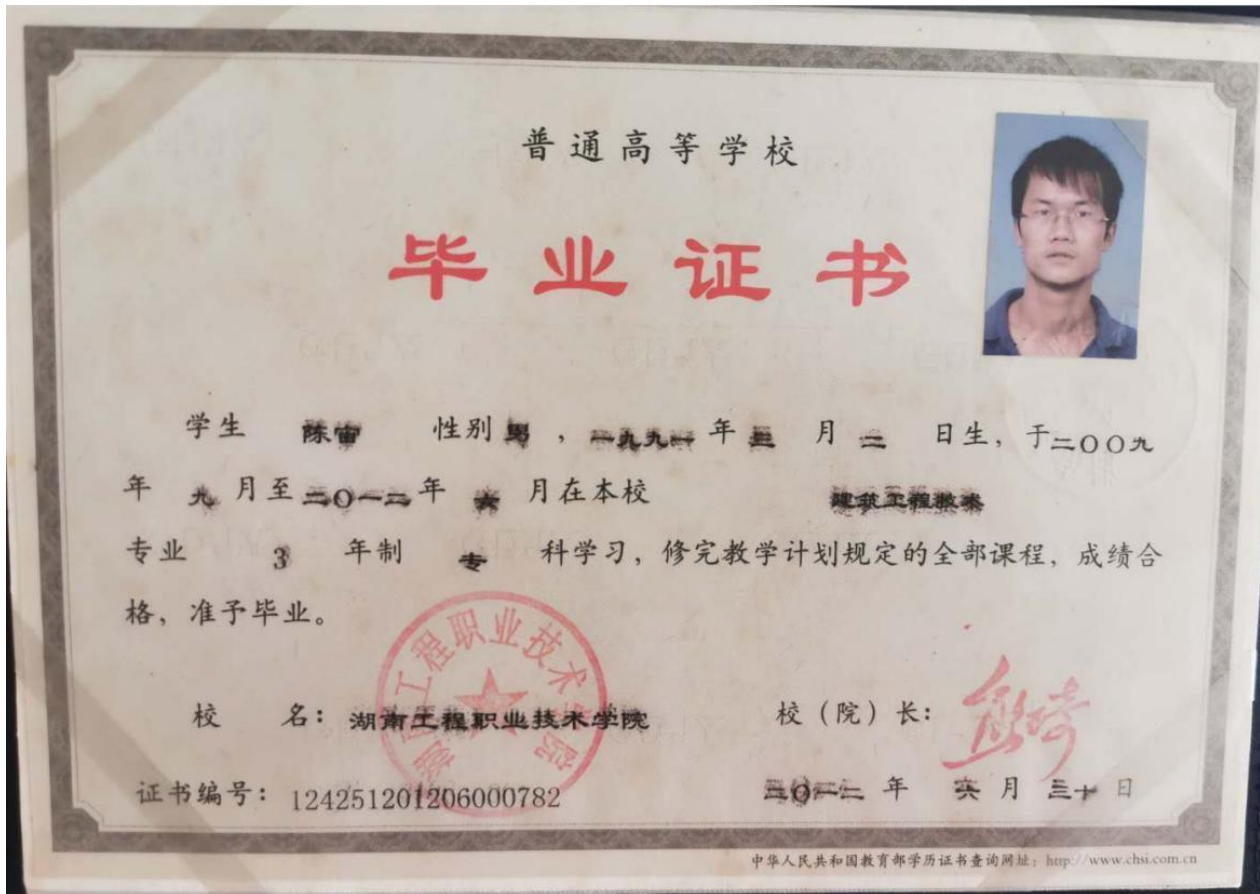 普通高等学校
毕业证书
学生 陈宙 性别 男，一九九一年 三 月 二 日生，于二〇〇九
年 九 月至二〇一二年 六 月在本校 建筑工程技术
专业 3 年制 专 科学习，修完教学计划规定的全部课程，成绩合
格，准予毕业。
湖南工程职业技术学院
校 名：湖南工程职业技术学院 校（院）长：
证书编号：124251201206000782 二〇一二年 六 月 三十 日
中华人民共和国教育部学历证书查询网址：http://www.chsi.com.cn